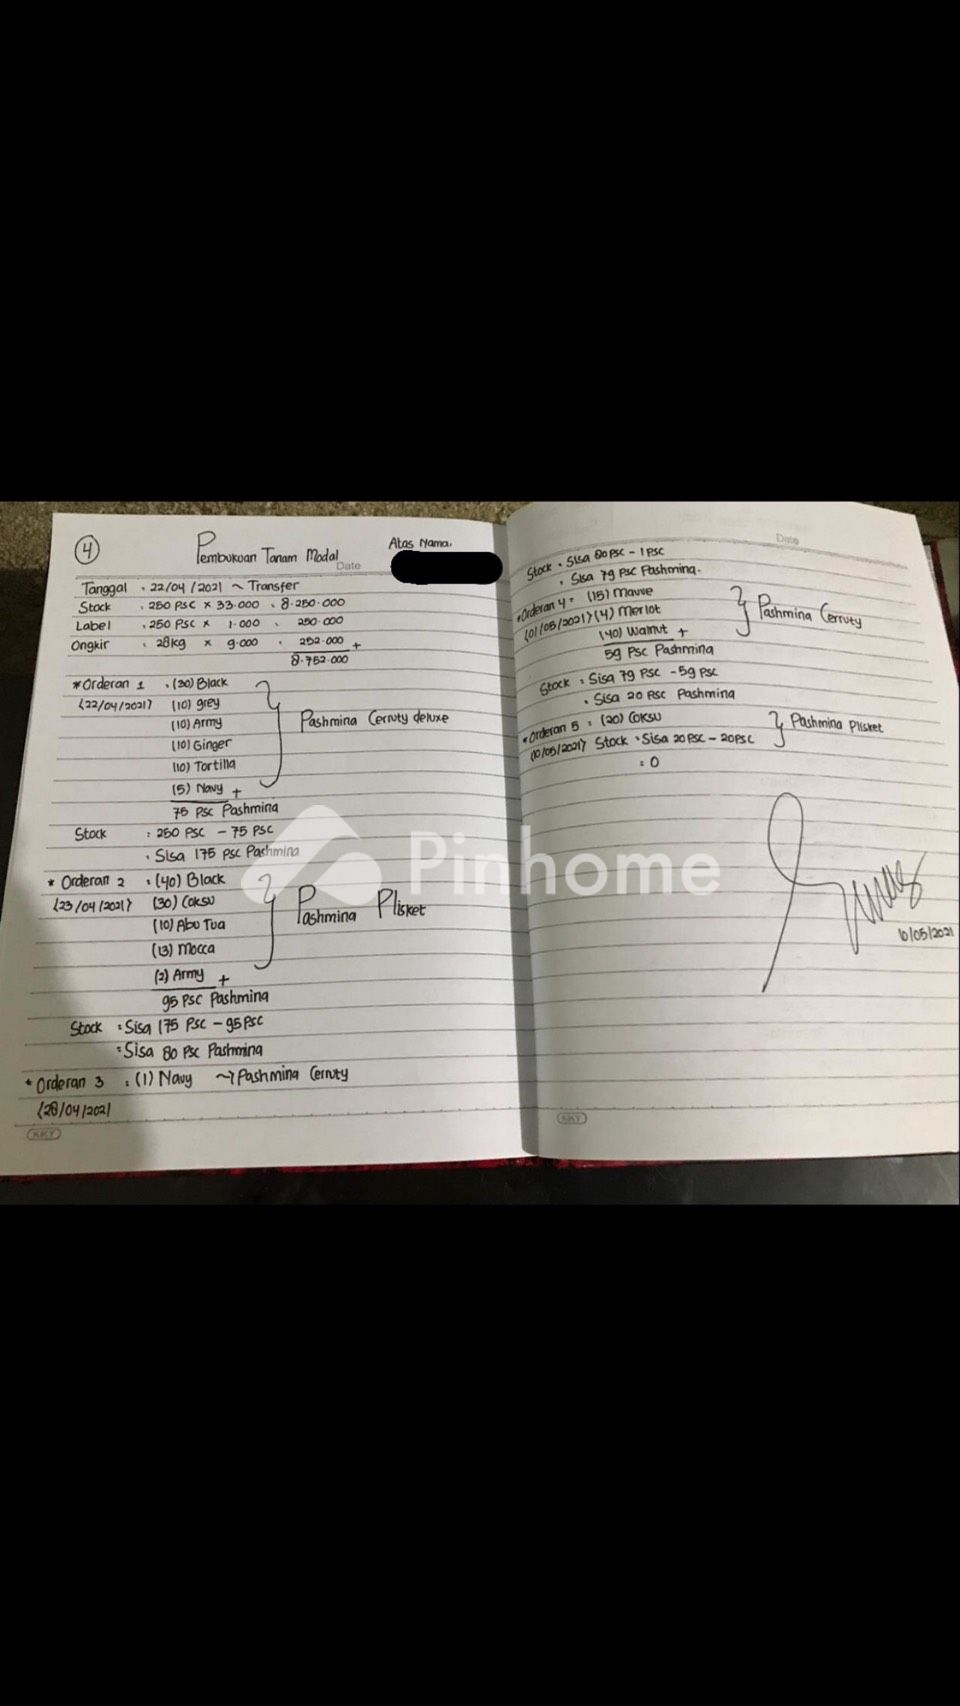 4
Pembukuan Tanam Modal
Atas Nama.
Date
Tanggal : 22/04/2021 ~ Transfer
Stock : 250 PSC × 33.000 : 8.250.000
Label : 250 PSC × 1.000 : 250.000
Ongkir : 28kg × 9.000 : 252.000 +
8.752.000
*Orderan 1 : (30) Black
{22/04/2021} (10) grey
(10) Army
(10) Ginger
(10) Tortilla
(5) Navy +
Pashmina Cerruty deluxe
75 PSC Pashmina
Stock : 250 PSC - 75 PSC
: Sisa 175 PSC Pashmina
* Orderan 2 : (40) Black
{23/04/2021} (30) Coksu
(10) Abu Tua
(13) Mocca
(2) Army +
Pashmina Plisket
95 PSC Pashmina
Stock : Sisa 175 PSC - 95 PSC
: Sisa 80 PSC Pashmina
* Orderan 3 : (1) Navy ~} Pashmina Cerruty
{28/04/2021
KKY
Date
Stock : Sisa 80 PSC - 1 PSC
: Sisa 79 PSC Pashmina.
*Orderan 4 : (15) Mauve
{01/05/2021} (4) Merlot
(40) Walnut +
Pashmina Cerruty
59 PSC Pashmina
Stock : Sisa 79 PSC - 59 PSC
: Sisa 20 PSC Pashmina
*Orderan 5 : (20) COKSU
{10/05/2021} Stock : Sisa 20 PSC - 20 PSC
Pashmina Plisket
: 0
10/05/2021
KKY
Pinhome